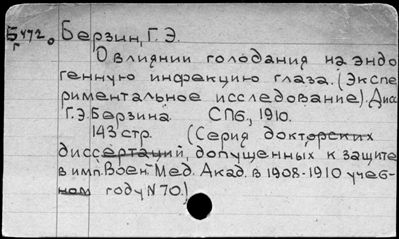 Б472. Берзин, Г. Э.
г
О влиянии голодания на эндо
генную инфекцию глаза. (Экспе
риментальное исследование). Дисс
Г. Э. Берзина. СПб., 1910.
143 стр. (Серия докторских
диссертаций, допущенных к защите
в имп. Воен. Мед. Акад. в 1908-1910 учеб-
ном году N 70.)